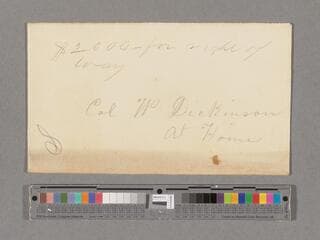 $2000 for right of
way
Col Wm Dickinson
At Home
S